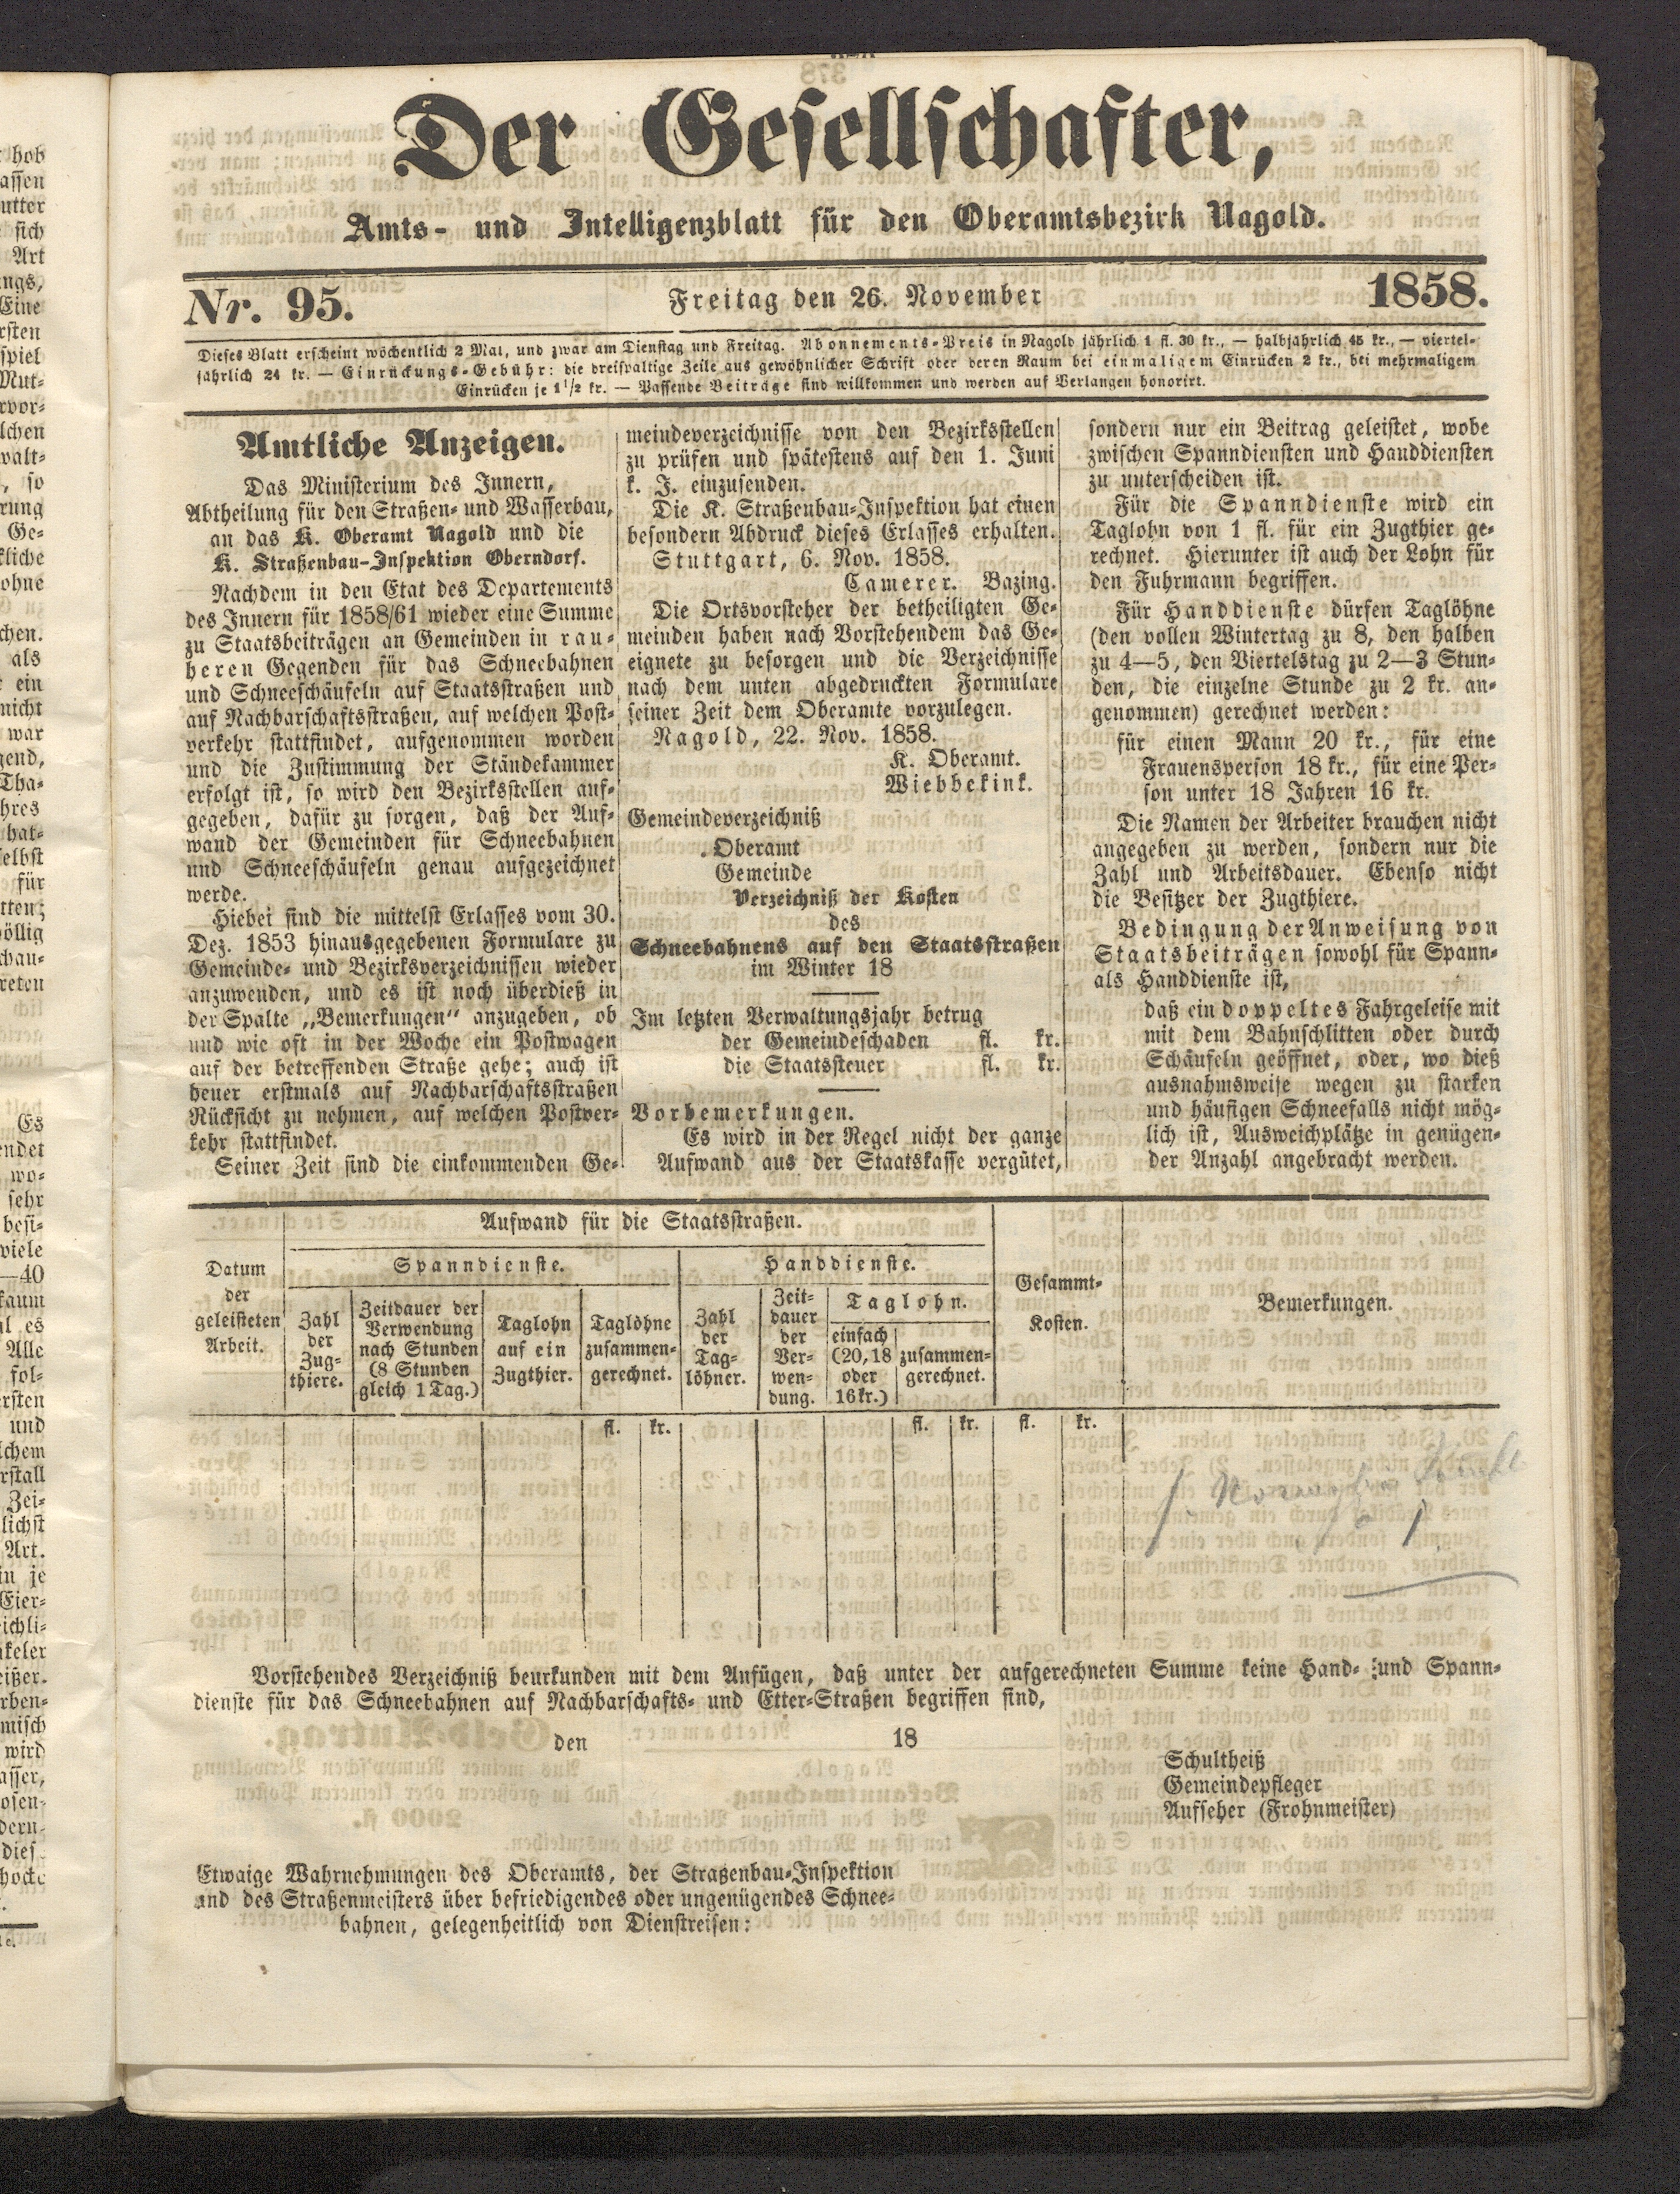 Der Gesellschafter,
Amts- und Intelligenzblatt für den Oberamtsbezirk Nagold.
Nr. 95.
Freitag den 26. November
1858.
Dieses Blatt erscheint wöchentlich 2 Mal, und zwar am Dienstag und Freitag. Abonnements-Preis in Nagold jährlich 1 fl. 30 kr., — halbjährlich 45 kr., — viertel-
jährlich 24 kr. — Einrückungs-Gebühr: die dreispaltige Zeile aus gewöhnlicher Schrift oder deren Raum bei einmaligem Einrücken 2 kr., bei mehrmaligem
Einrücken je 1 1/2 kr. — Passende Beiträge sind willkommen und werden auf Verlangen honorirt.
Amtliche Anzeigen.
Das Ministerium des Innern,
Abtheilung für den Straßen- und Wasserbau,
an das K. Oberamt Nagold und die
K. Straßenbau-Inspektion Oberndorf.
Nachdem in den Etat des Departements
des Innern für 1858/61 wieder eine Summe
zu Staatsbeiträgen an Gemeinden in rau-
heren Gegenden für das Schneebahnen
und Schneeschäufeln auf Staatsstraßen und
auf Nachbarschaftsstraßen, auf welchen Post-
verkehr stattfindet, aufgenommen worden
und die Zustimmung der Ständekammer
erfolgt ist, so wird den Bezirksstellen auf-
gegeben, dafür zu sorgen, daß der Auf-
wand der Gemeinden für Schneebahnen
und Schneeschäufeln genau aufgezeichnet
werde.
Hiebei sind die mittelst Erlasses vom 30.
Dez. 1853 hinausgegebenen Formulare zu
Gemeinde- und Bezirksverzeichnissen wieder
anzuwenden, und es ist noch überdieß in
der Spalte „Bemerkungen“ anzugeben, ob
und wie oft in der Woche ein Postwagen
auf der betreffenden Straße gehe; auch ist
heuer erstmals auf Nachbarschaftsstraßen
Rücksicht zu nehmen, auf welchen Postver-
kehr stattfindet.
Seiner Zeit sind die einkommenden Ge-
meindeverzeichnisse von den Bezirksstellen
zu prüfen und spätestens auf den 1. Juni
k. J. einzusenden.
Die K. Straßenbau-Inspektion hat einen
besondern Abdruck dieses Erlasses erhalten.
Stuttgart, 6. Nov. 1858.
Camerer. Bazing.
Die Ortsvorsteher der betheiligten Ge-
meinden haben nach Vorstehendem das Ge-
eignete zu besorgen und die Verzeichnisse
nach dem unten abgedruckten Formulare
seiner Zeit dem Oberamte vorzulegen.
Nagold, 22. Nov. 1858.
K. Oberamt.
Wiebbekink.
Gemeindeverzeichniß
Oberamt
Gemeinde
Verzeichniß der Kosten
des
Schneebahnens auf den Staatsstraßen
im Winter 18
Im letzten Verwaltungsjahr betrug
der Gemeindeschaden fl. kr.
die Staatssteuer fl. kr.
Vorbemerkungen.
Es wird in der Regel nicht der ganze
Aufwand aus der Staatskasse vergütet,
sondern nur ein Beitrag geleistet, wobe
zwischen Spanndiensten und Handdiensten
zu unterscheiden ist.
Für die Spanndienste wird ein
Taglohn von 1 fl. für ein Zugthier ge-
rechnet. Hierunter ist auch der Lohn für
den Fuhrmann begriffen.
Für Handdienste dürfen Taglöhne
(den vollen Wintertag zu 8, den halben
zu 4—5, den Viertelstag zu 2—3 Stun-
den, die einzelne Stunde zu 2 kr. an-
genommen) gerechnet werden:
für einen Mann 20 kr., für eine
Frauensperson 18 kr., für eine Per-
son unter 18 Jahren 16 kr.
Die Namen der Arbeiter brauchen nicht
angegeben zu werden, sondern nur die
Zahl und Arbeitsdauer. Ebenso nicht
die Besitzer der Zugthiere.
Bedingung der Anweisung von
Staatsbeiträgen sowohl für Spann-
als Handdienste ist,
daß ein doppeltes Fahrgeleise mit
mit dem Bahnschlitten oder durch
Schäufeln geöffnet, oder, wo dieß
ausnahmsweise wegen zu starken
und häufigen Schneefalls nicht mög-
lich ist, Ausweichplätze in genügen-
der Anzahl angebracht werden.
Datum
der
geleisteten
Arbeit.
Aufwand für die Staatsstraßen.
Spanndienste.
Zahl
der
Zug-
thiere.
Zeitdauer der
Verwendung
nach Stunden
(8 Stunden
gleich 1 Tag.)
Taglohn
auf ein
Zugthier.
Taglöhne
zusammen-
gerechnet.
Handdienste.
Zahl
der
Tag-
löhner.
Zeit-
dauer
der
Ver-
wen-
dung.
Taglohn.
einfach
(20, 18
oder
16 kr.)
zusammen-
gerechnet.
Gesammt-
Kosten.
Bemerkungen.
fl. kr. fl. kr. fl. kr.
Vorstehendes Verzeichniß beurkunden mit dem Anfügen, daß unter der aufgerechneten Summe keine Hand- und Spann-
dienste für das Schneebahnen auf Nachbarschafts- und Etter-Straßen begriffen sind,
den 18
Schultheiß
Gemeindepfleger
Aufseher (Frohnmeister)
Etwaige Wahrnehmungen des Oberamts, der Straßenbau-Inspektion
und des Straßenmeisters über befriedigendes oder ungenügendes Schnee-
bahnen, gelegenheitlich von Dienstreisen: